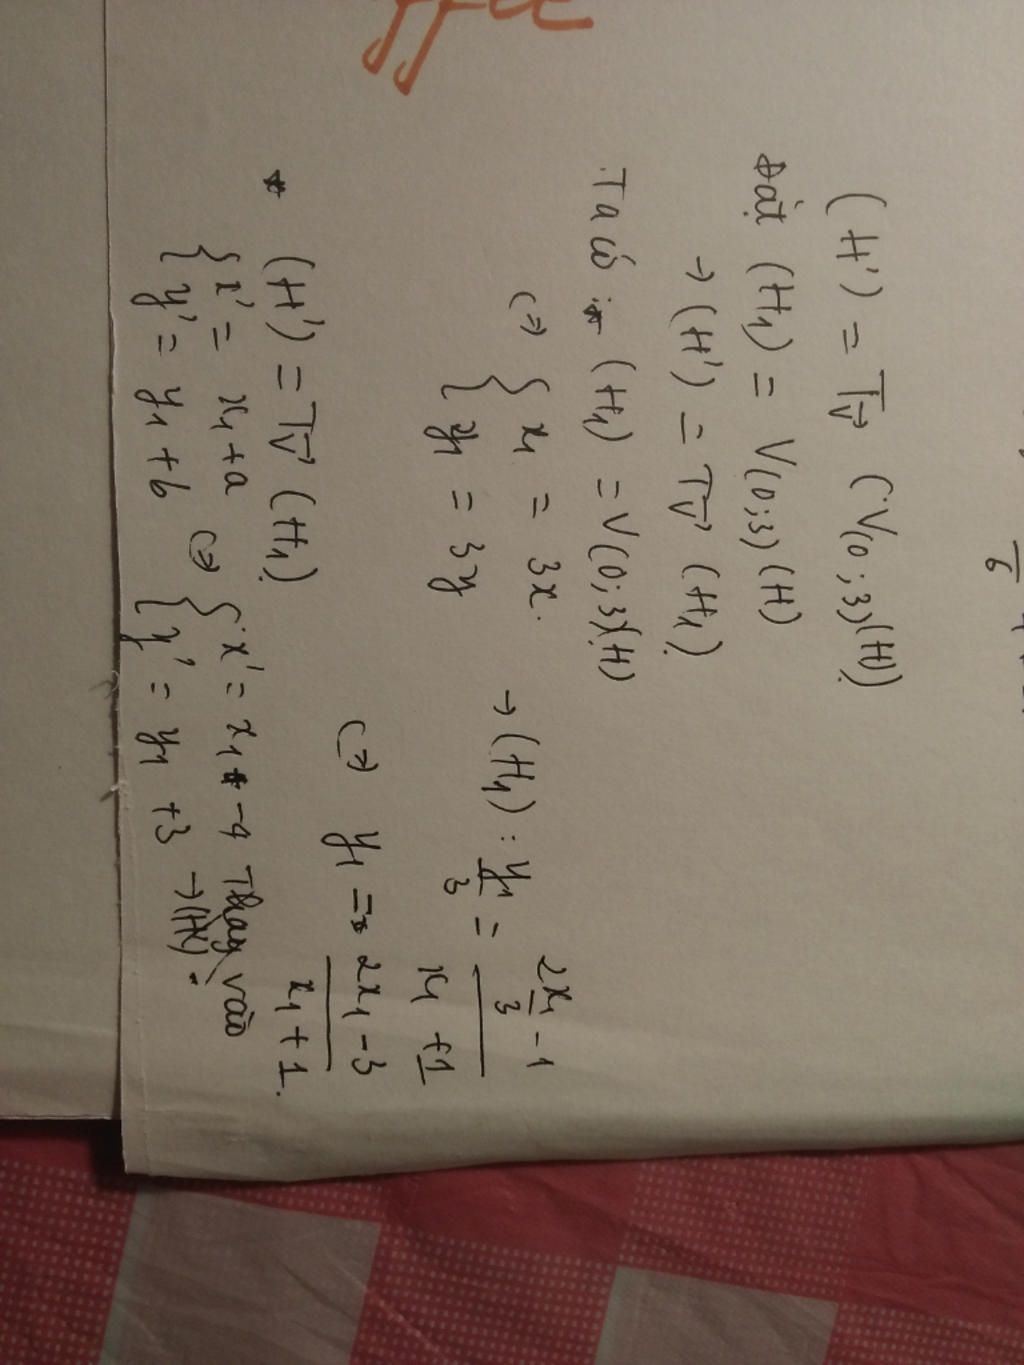 (H') = T_v⃗ (V(0;3)(H))
Đặt (H₁) = V(0;3)(H)
→ (H') = T_v⃗ (H₁)
Ta có: * (H₁) = V(0;3)(H)
<=> { x₁ = 3x
{ y₁ = 3y
→ (H₁): y₁/3 = (2x₁/3 - 1)/(x₁ + 1)
<=> y₁ = (2x₁ - 3)/(x₁ + 1).
* (H') = T_v⃗ (H₁)
{ x' = x₁ + a <=> { x' = x₁ - 4 Thay vào
{ y' = y₁ + b { y' = y₁ + 3 → (H'):